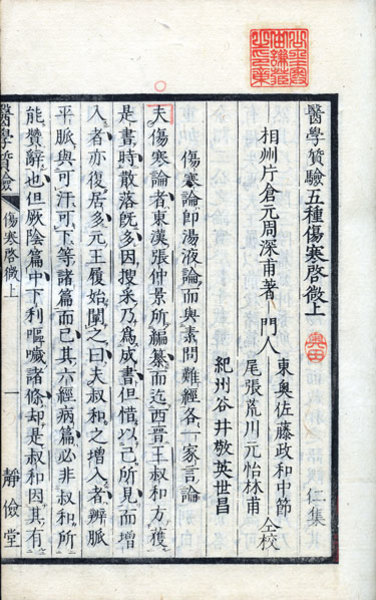 醫學質驗五種傷寒啓微上
仁集
相州片倉元周深甫著
門人
東奥佐藤政和中節
尾張荒川元怡林甫
紀州谷井敬英世昌
仝校
傷寒論即湯液論而與素問難經各一家言論
夫傷寒論者東漢張仲景所編纂而迄西晋王叔和方獲
是書時散落既多因搜采乃爲成書但惜以己所見而增
入者亦復居多元王履始闖之曰夫叔和之增入者辨脈
平脈與可汗可下等諸篇而已其六經病篇必非叔和所
能贊辭也但厥陰篇中下利嘔噦諸條却是叔和因其有
醫學質驗
傷寒啓微上
一
靜儉堂
奥田